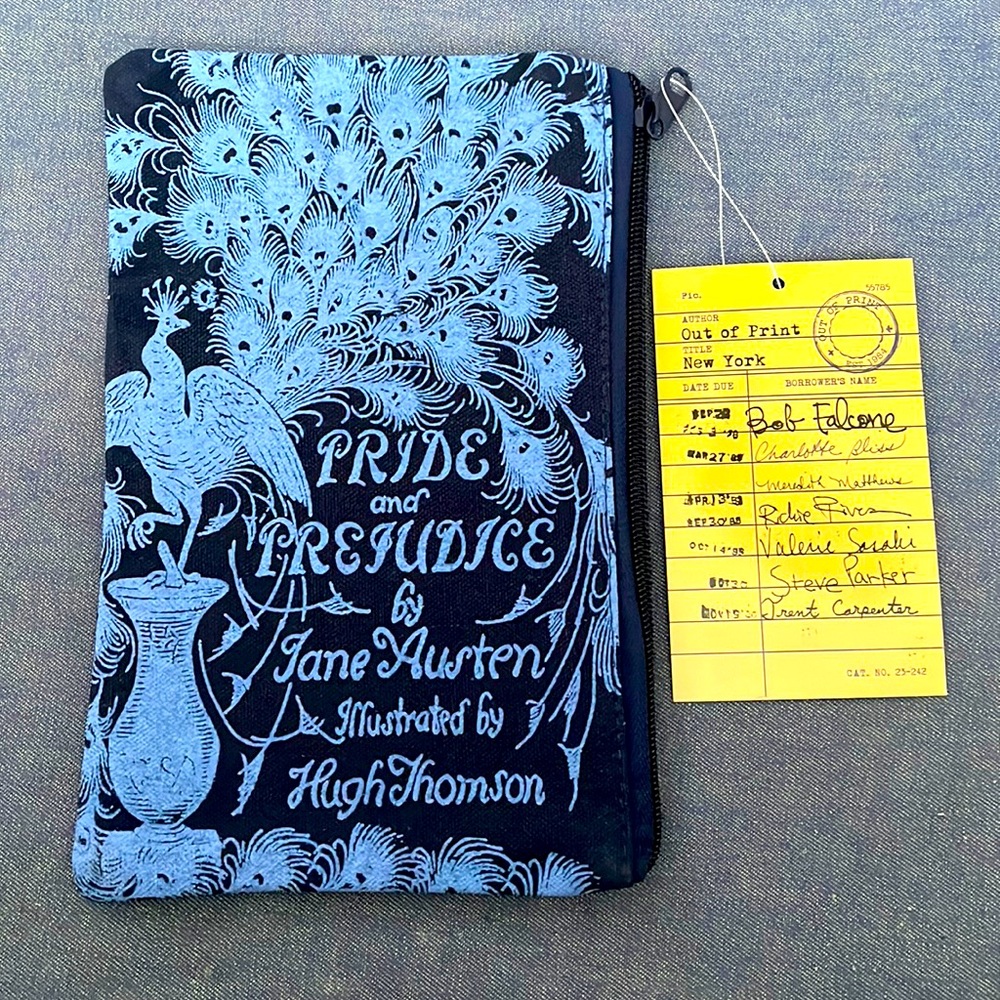 PRIDE
and
PREJUDICE
by
Jane Austen
Illustrated by
Hugh Thomson
Fic.
55785
AUTHOR
Out of Print
TITLE
New York
OUT OF PRINT
EST 1984
DATE DUE BORROWER'S NAME
Bob Falcone
MAR 27 Charlotte Bliss
Meredith Matthews
APR 13
SEP 30 '88
OCT 14 '88 Valerie Sasaki
Steve Parker
NOV 15 Trent Carpenter
CAT. NO. 23-242